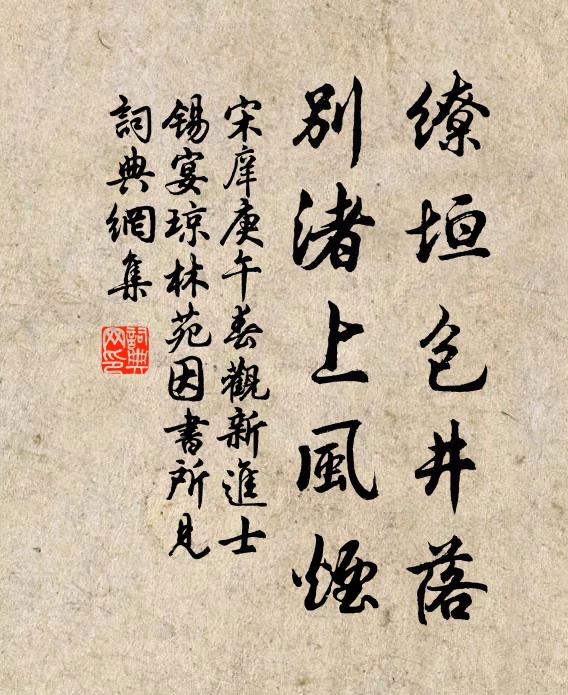 繚垣包井落
別渚上風煙
宋庠庚午春觀新進士
錫宴琼林苑因書所見
詞典網集
詞典网印